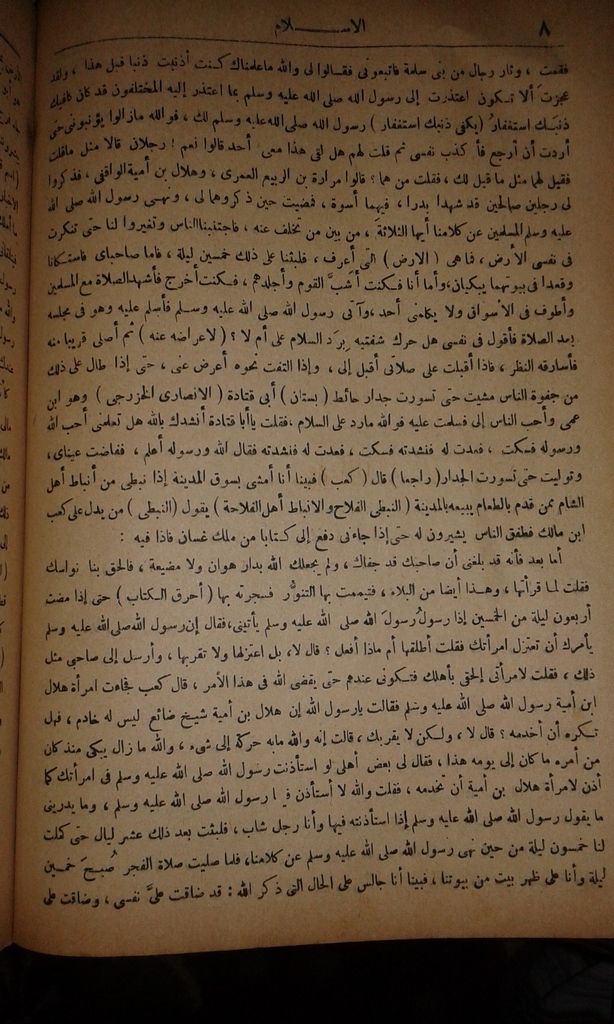 ٨ الاســـــلام
فقمت ، وثار رجال من بنى سلمة فاتبعونى فقالوا لى والله ماعلمناك كنت أذنبت ذنبا قبل هذا ، ولقد
عجزت ألا تكون اعتذرت إلى رسول الله صلى الله عليه وسلم بما اعتذر إليه المختلفون قد كان كافيك
ذنبك استغفارُ (يكفى ذنبك استغفار) رسول الله صلى الله عليه وسلم لك ، فوالله مازالوا يؤنبونى حتى
أردت أن أرجع فأ كذب نفسى ثم قلت لهم هل لقى هذا معى أحد قالوا نعم ! رجلان قالا مثل ماقلت
فقيل لهما مثل ما قيل لك ، فقلت من هما ؟ قالوا مرارة بن الربيع العمرى ، وهلال بن أمية الواقفى ، فذكروا
لى رجلين صالحين قد شهدا بدرا ، فيهما أسوة ، فمضيت حين ذكروهما لى ، ونهى رسول الله صلى الله
عليه وسلم المسلمين عن كلامنا أيها الثلاثة ، من بين من تخلف عنه ، فاجتنبنا الناس وتغيروا لنا حتى تنكرت
فى نفسى الأرض ، فما هى ( الارض ) التى أعرف ، فلبثنا على ذلك خمسين ليلة ، فاما صاحباى فاستكانا
وقعدا فى بيوتهما يبكيان ، وأما أنا فكنت أشبَّ القوم وأجلدهم ، فكنت أخرج فأشهد الصلاة مع المسلمين
وأطوف فى الأسواق ولا يكلمنى أحد ، وآتى رسول الله صلى الله عليه وسلم فأسلم عليه وهو فى مجلسه
بعد الصلاة فأقول فى نفسى هل حرك شفتيه برَد السلام على أم لا ؟ ( لاعراضه عنه ) ثم أصلى قريبا منه
فأسارقه النظر ، فاذا أقبلت على صلاتى أقبل إلى ، وإذا التفت نحوه أعرض عنى ، حتى إذا طال على ذلك
من جفوة الناس مشيت حتى تسورت جدار حائط ( بستان ) أبى قتادة ( الانصارى الخزرجى ) وهو ابن
عمى وأحب الناس إلى فسلمت عليه فوالله مارد على السلام ، فقلت ياأبا قتادة أنشدك بالله هل تعلمنى أحب الله
ورسوله فسكت ، فعدت له فنشدته فسكت ، فعدت له فنشدته فقال الله ورسوله أعلم ، ففاضت عيناى ،
وتوليت حتى تسورت الجدار ( راجعا ) قال ( كعب ) فبينا أنا أمشى بسوق المدينة إذا نبطى من أنباط أهل
الشام ممن قدم بالطعام يبيعه بالمدينة ( النبطى الفلاح والانباط أهل الفلاحة ) يقول (النبطى) من يدل على كعب
ابن مالك فطفق الناس يشيرون له حتى إذا جاءنى دفع إلى كتابا من ملك غسان فاذا فيه :
أما بعد فأنه قد بلغنى أن صاحبك قد جفاك ، ولم يجعلك الله بدار هوان ولا مضيعة ، فالحق بنا نواسك
فقلت لما قرأتها ، وهذا أيضا من البلاء ، فتيممت بها التنوُّر فسجرته بها ( أحرق الكتاب ) حتى إذا مضت
أربعون ليلة من الخمسين إذا رسولُ رسولَ الله صلى الله عليه وسلم يأتينى ، فقال إن رسول الله صلى الله عليه وسلم
يأمرك أن تعتزل امرأتك فقلت أطلقها أم ماذا أفعل ؟ قال لا ، بل اعتزلها ولا تقربها ، وأرسل إلى صاحبى مثل
ذلك ، فقلت لامرأتى إلحقى بأهلك فتكونى عندهم حتى يقضى الله فى هذا الأمر ، قال كعب فجاءت امرأة هلال
ابن أمية رسول الله صلى الله عليه وسلم فقالت يارسول الله إن هلال بن أمية شيخ ضائع ليس له خادم ، فهل
تكره أن أخدمه ؟ قال لا ، ولكن لا يقربك ، قالت إنه والله مابه حركة إلى شىء ، والله ما زال يبكى منذ كان
من أمره ما كان إلى يومه هذا ، فقال لى بعض أهلى لو استأذنت رسول الله صلى الله عليه وسلم فى امرأتك كما
أذن لامرأة هلال بن أمية أن تخدمه ، فقلت والله لا أستأذن فيها رسول الله صلى الله عليه وسلم ، وما يدرينى
ما يقول رسول الله صلى الله عليه وسلم إذا استأذنته فيها وأنا رجل شاب ، فلبثت بعد ذلك عشر ليال حتى كملت
لنا خمسون ليلة من حين نهى رسول الله صلى الله عليه وسلم عن كلامنا ، فلما صليت صلاة الفجر صُبحَ خمسين
ليلة وأنا على ظهر بيت من بيوتنا ، فبينا أنا جالس على الحال التى ذكر الله : قد ضاقت علىَّ نفسى ، وضاقت على